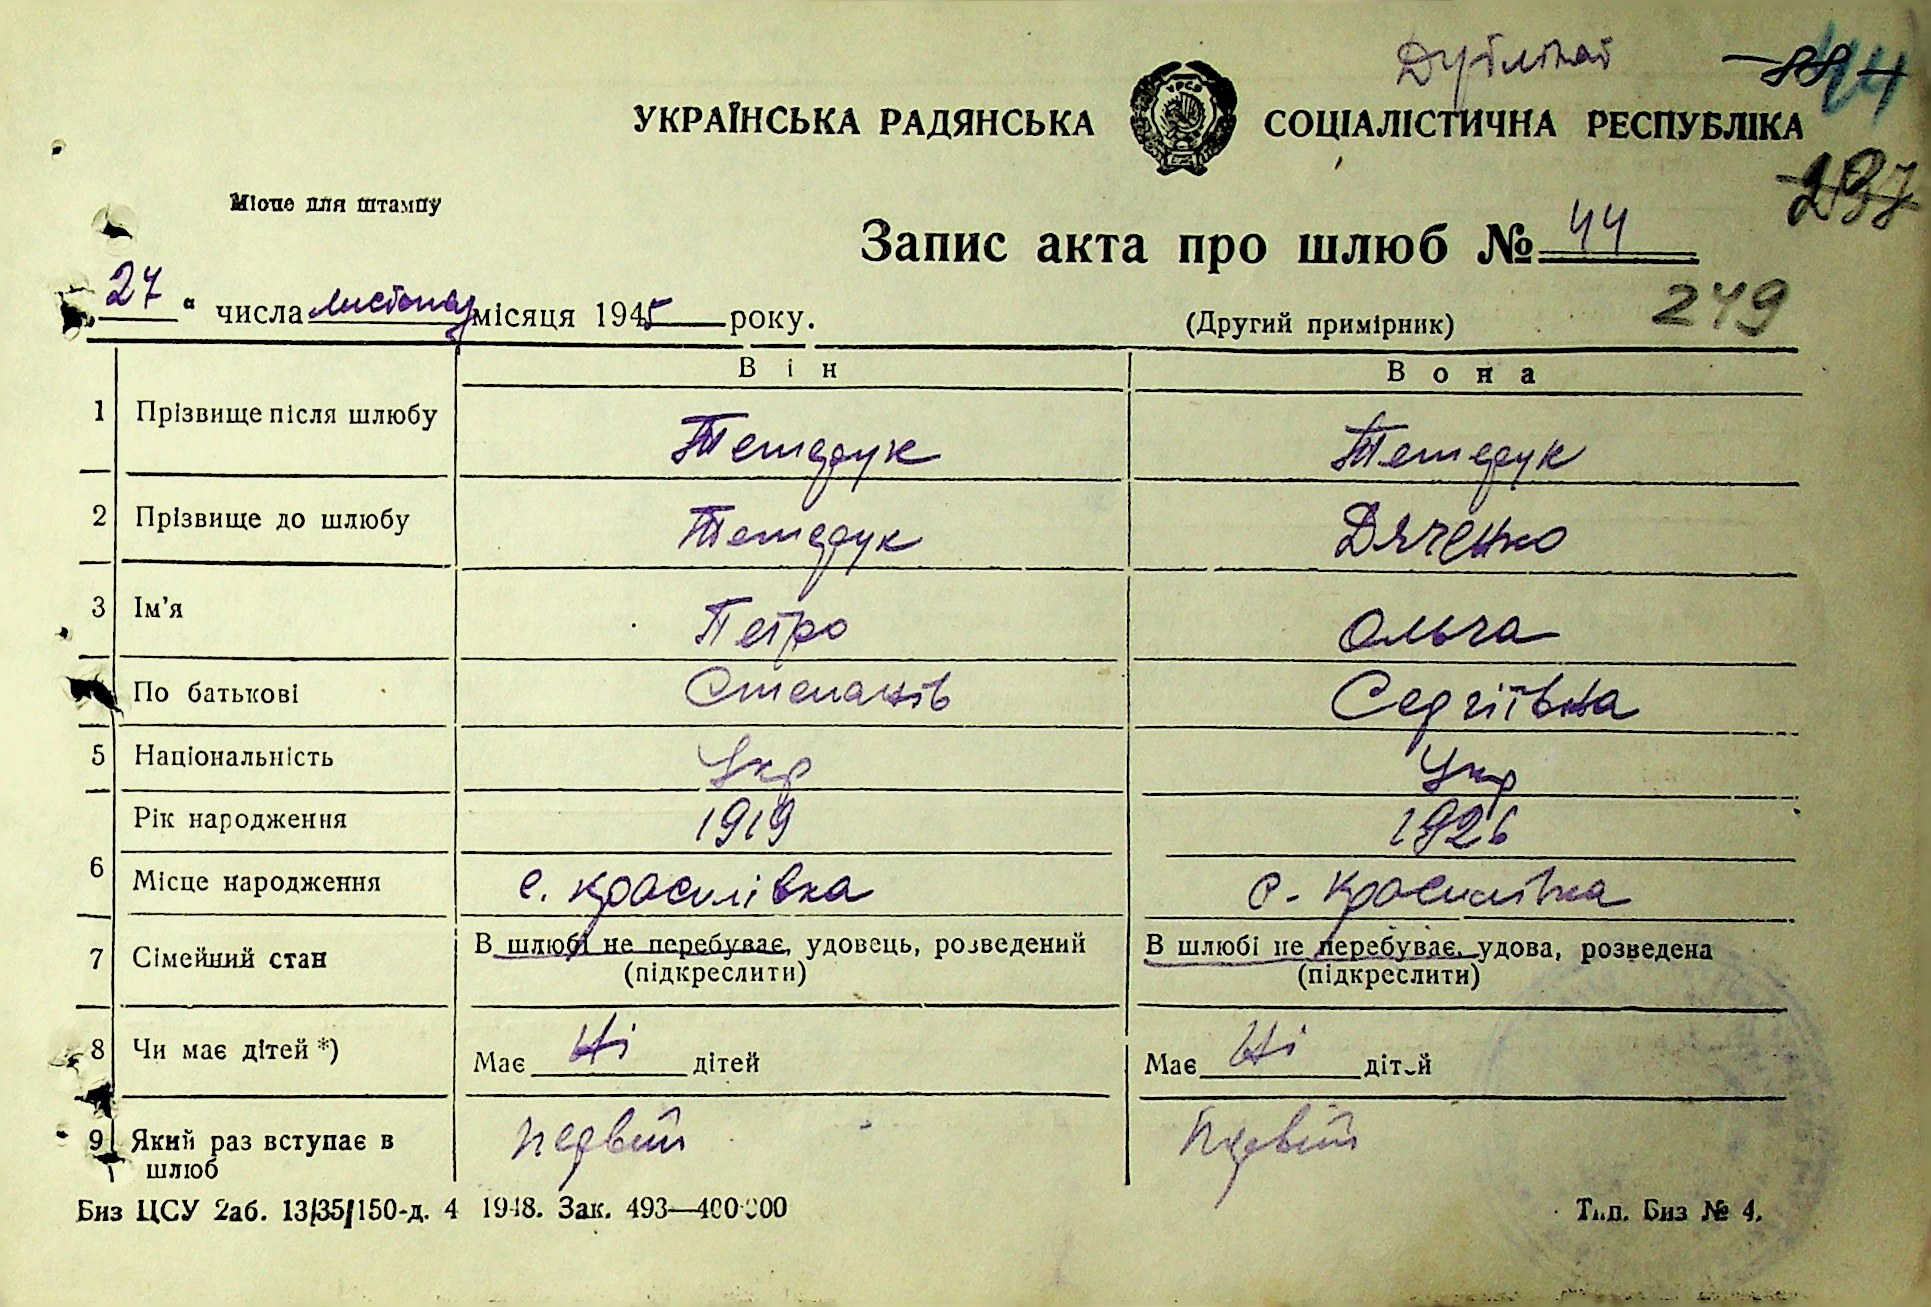 Дублікат
88 44
УКРАЇНСЬКА РАДЯНСЬКА СОЦІАЛІСТИЧНА РЕСПУБЛІКА
237
Місце для штампу
Запис акта про шлюб № 44
27 " числа листопад місяця 1945 року.
(Другий примірник)
249
Він Вона
1 Прізвище після шлюбу Тетедрук Тетедрук
2 Прізвище до шлюбу Тетедрук Дяченко
3 Ім'я Петро Ольга
По батькові Степанів Сергіївна
5 Національність Укр Укр
Рік народження 1919 1926
6 Місце народження с. Красилівка с. Красилівка
7 Сімейний стан В шлюбі не перебуває, удовець, розведений В шлюбі не перебуває, удова, розведена
(підкреслити) (підкреслити)
8 Чи має дітей *) Має Ні дітей Має Ні дітей
9 Який раз вступає в шлюб первий первий
Биз ЦСУ 2аб. 13/35/150-д. 4 1948. Зак. 493—400.000 Тип. Биз № 4.